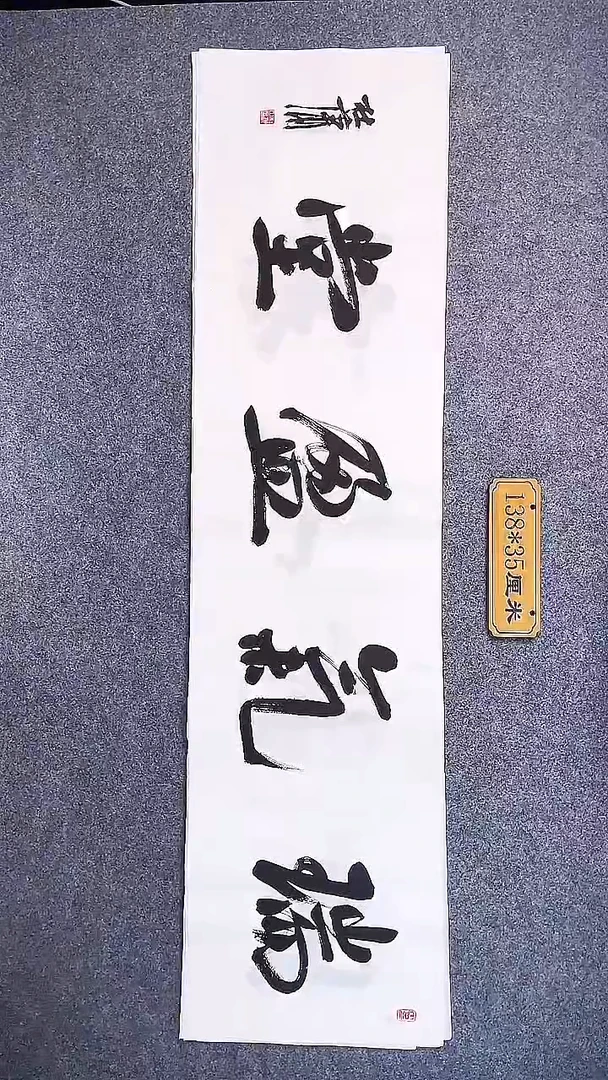 瑞氣盈堂
138*35厘米